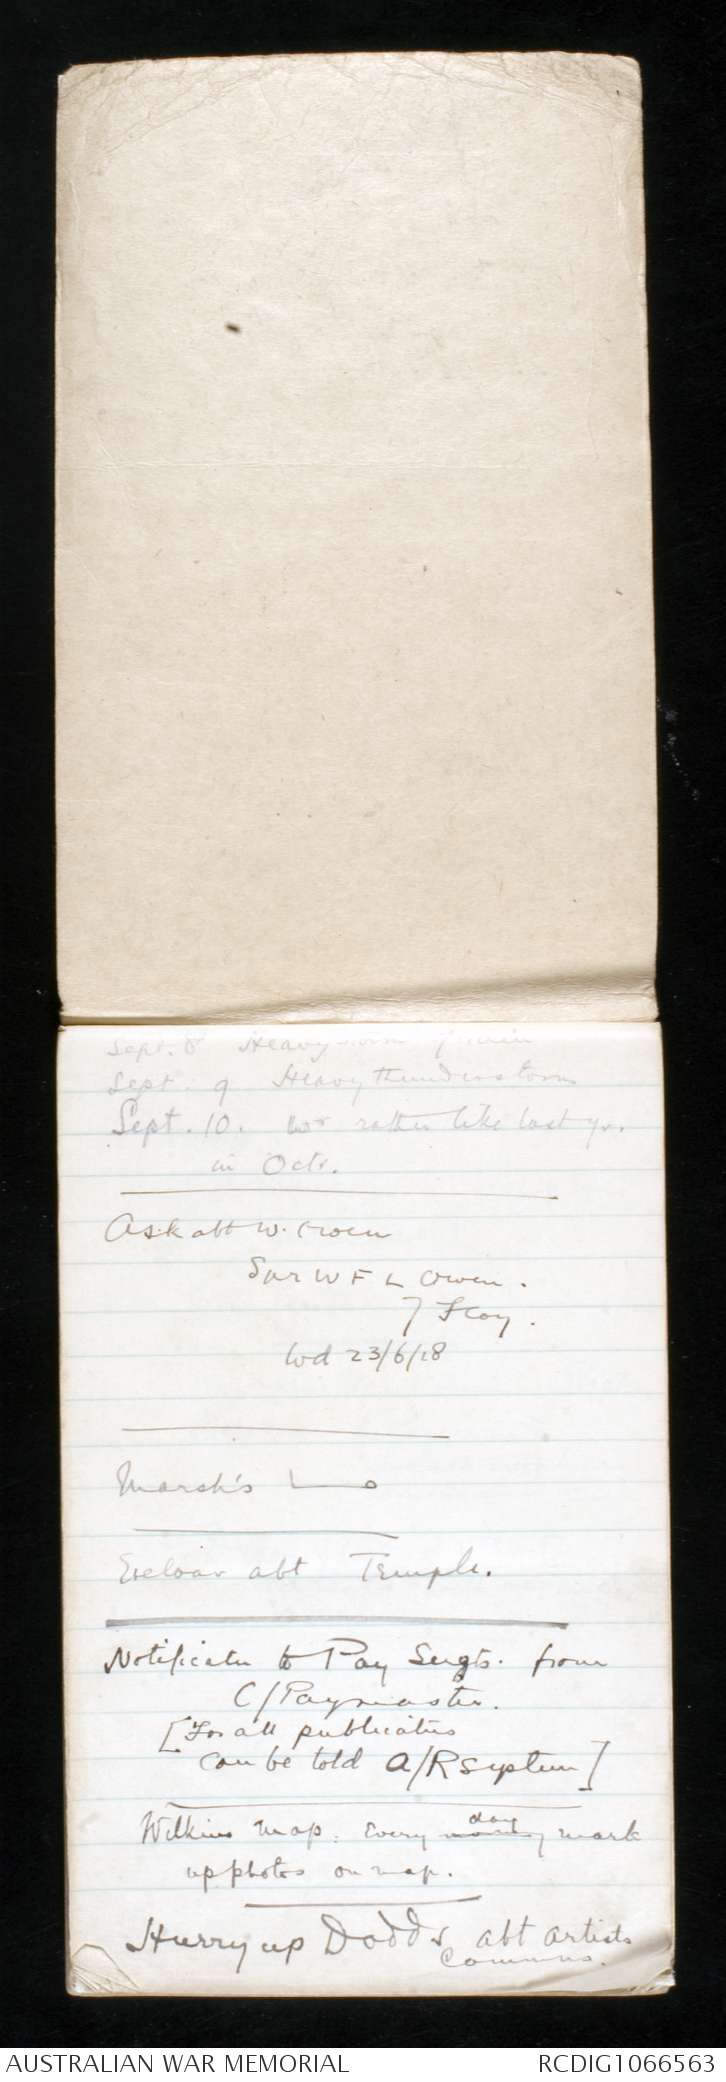 Sept. 8 Heavy of rain
Sept. 9 Heavy thunderstorm
Sept. 10. rather like last yr.
in Octr.
Ask abt W. Owen
W F L Owen.
7 F Coy.
Wd 23/6/18
Marsh's
Treloar abt Temple.
Notificatn to Pay Sergts. from
C/Paymaster.
[For all publicatns
can be told A/R System]
Wilkins map: Every day mark
up photos on map.
Hurry up Dodds abt artists
Commns.
AUSTRALIAN WAR MEMORIAL
RCDIG1066563